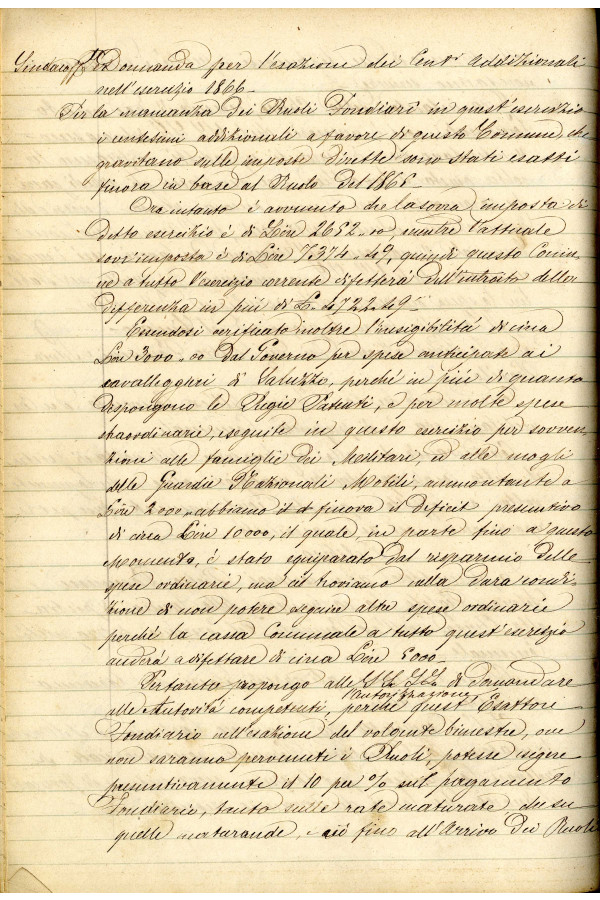 Sindaco Domanda per l'esazione dei Cent.i Addizionali
nell'esercizio 1866.
Per la mancanza dei Ruoli Fondiarî in quest'esercizio
i centesimi addizionali a favore di questo Comune che
gravitano sulle imposte dirette sono stati esatti
finora in base al Ruolo del 1865
Ora intanto è avvenuto che la sovra imposta di
detto esercizio è di Lire 2652.00 mentre l'attuale
sovr'imposta è di Lire 7374.49, quindi questo Comu-
ne a tutto l'esercizio corrente difetterà dell'introito della
differenza in più di L. 4722.49
Essendosi verificato inoltre l'inesigibilità di circa
Lire 3000.00 dal Governo per spese anticipate ai
cavalleggeri di Saluzzo, perchè in più di quanto
dispongono le Regie Patenti, e per molte spese
straordinarie, eseguite in questo esercizio per sovven-
zioni alle famiglie dei Militari, ed alle mogli
delle Guardie Nazionali Mobili, ammontante a
Lire 2000, abbiamo finora il deficit presuntivo
di circa Lire 10000, il quale, in parte fino a questo
momento, è stato equiparato dal risparmio delle
spese ordinarie, ma ci troviamo nella dura condi-
zione di non potere eseguire altre spese ordinarie
perchè la cassa Comunale a tutto quest'esercizio
anderà a difettare di circa Lire 5000
Pertanto propongo alle SS. LL. di domandare
autorizzazione
alle Autorità competenti, perchè quest'Esattore
Fondiario nell'esazione del volgente bimestre, ove
non saranno pervenuti i Ruoli, potesse esigere
presuntivamente il 10 per % sul pagamento
Fondiario, tanto sulle rate maturate che su
quelle maturande, e ciò fino all'Arrivo dei Ruoli